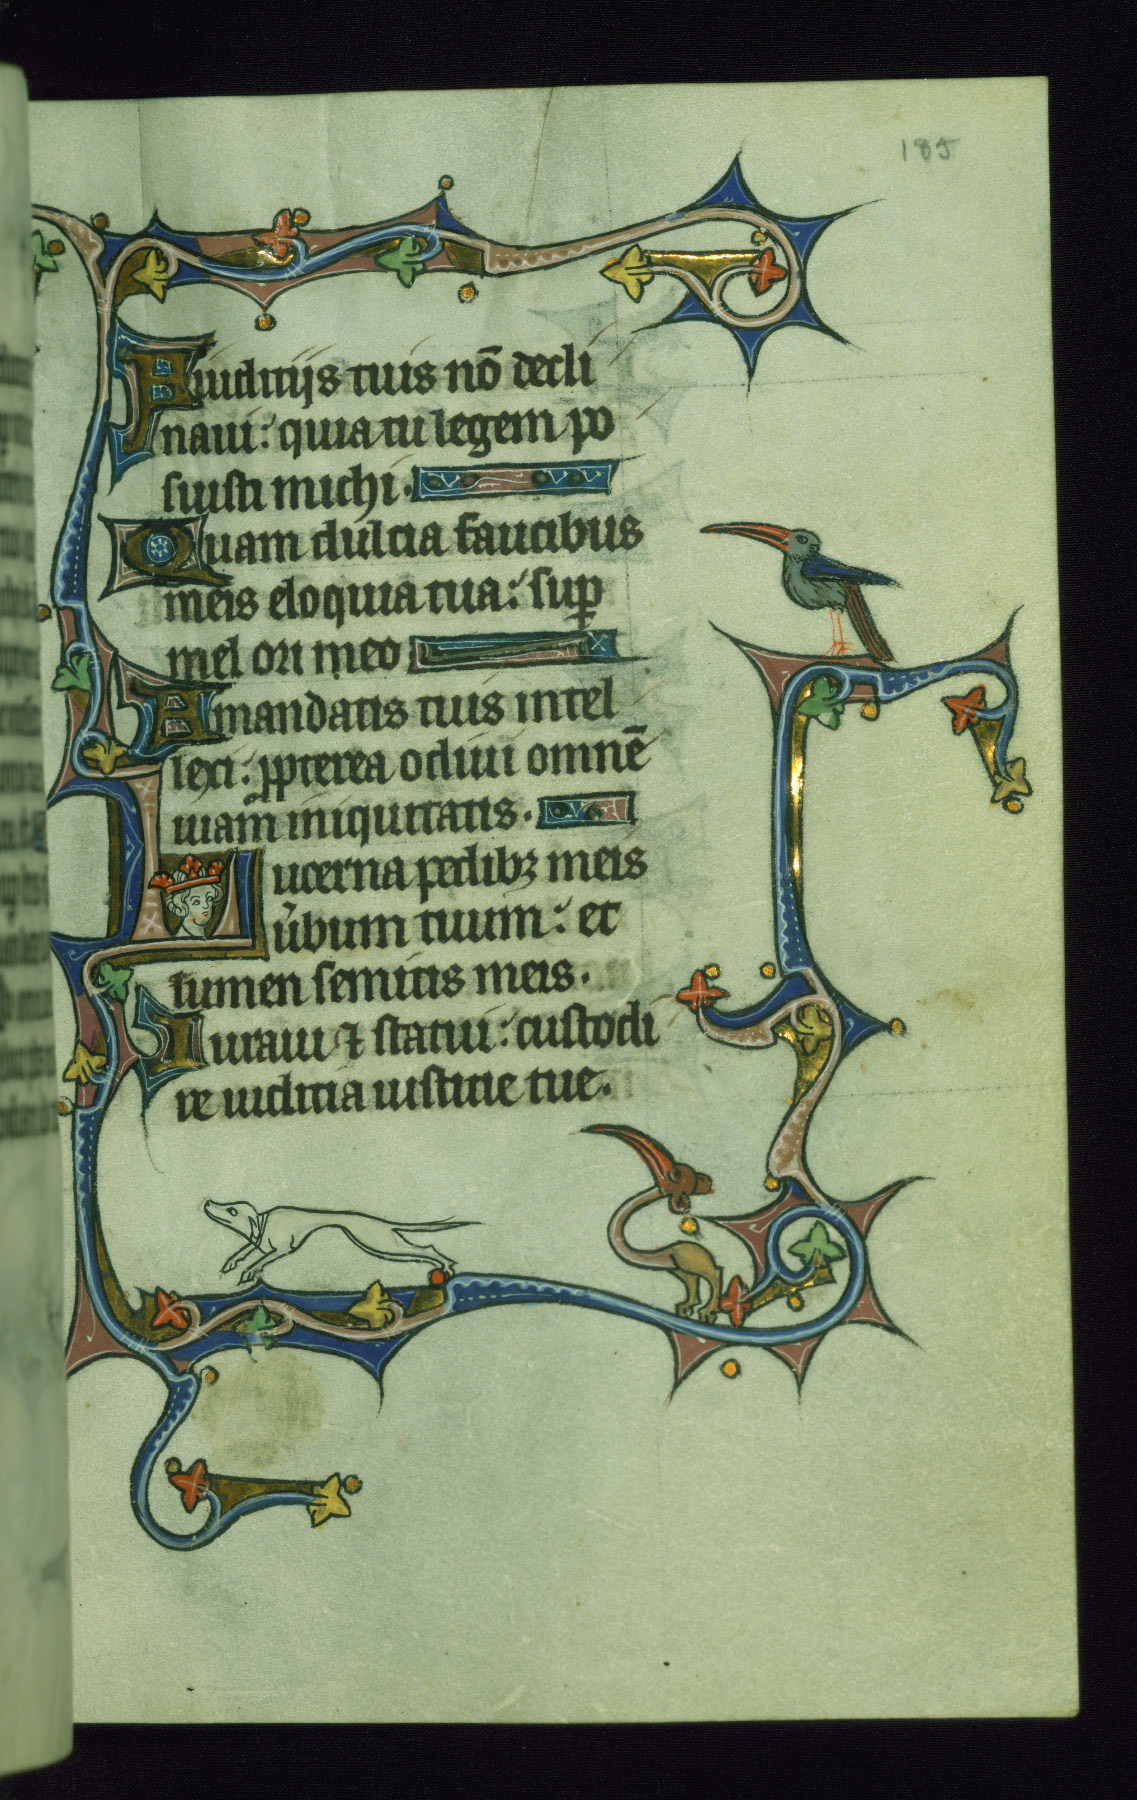 185
A iudicijs tuis nō decli
naui: quia tu legem po
suisti michi.
Quam dulcia faucibus
meis eloquia tua: suꝑ
mel ori meo
A mandatis tuis intel
lexi: ꝓpterea odiui omnē
uiam iniquitatis.
Lucerna pedibꝫ meis
u̾bum tuum: et
lumen semitis meis.
Iuraui ⁊ statui: custodi
re iudicia iusticie tue.